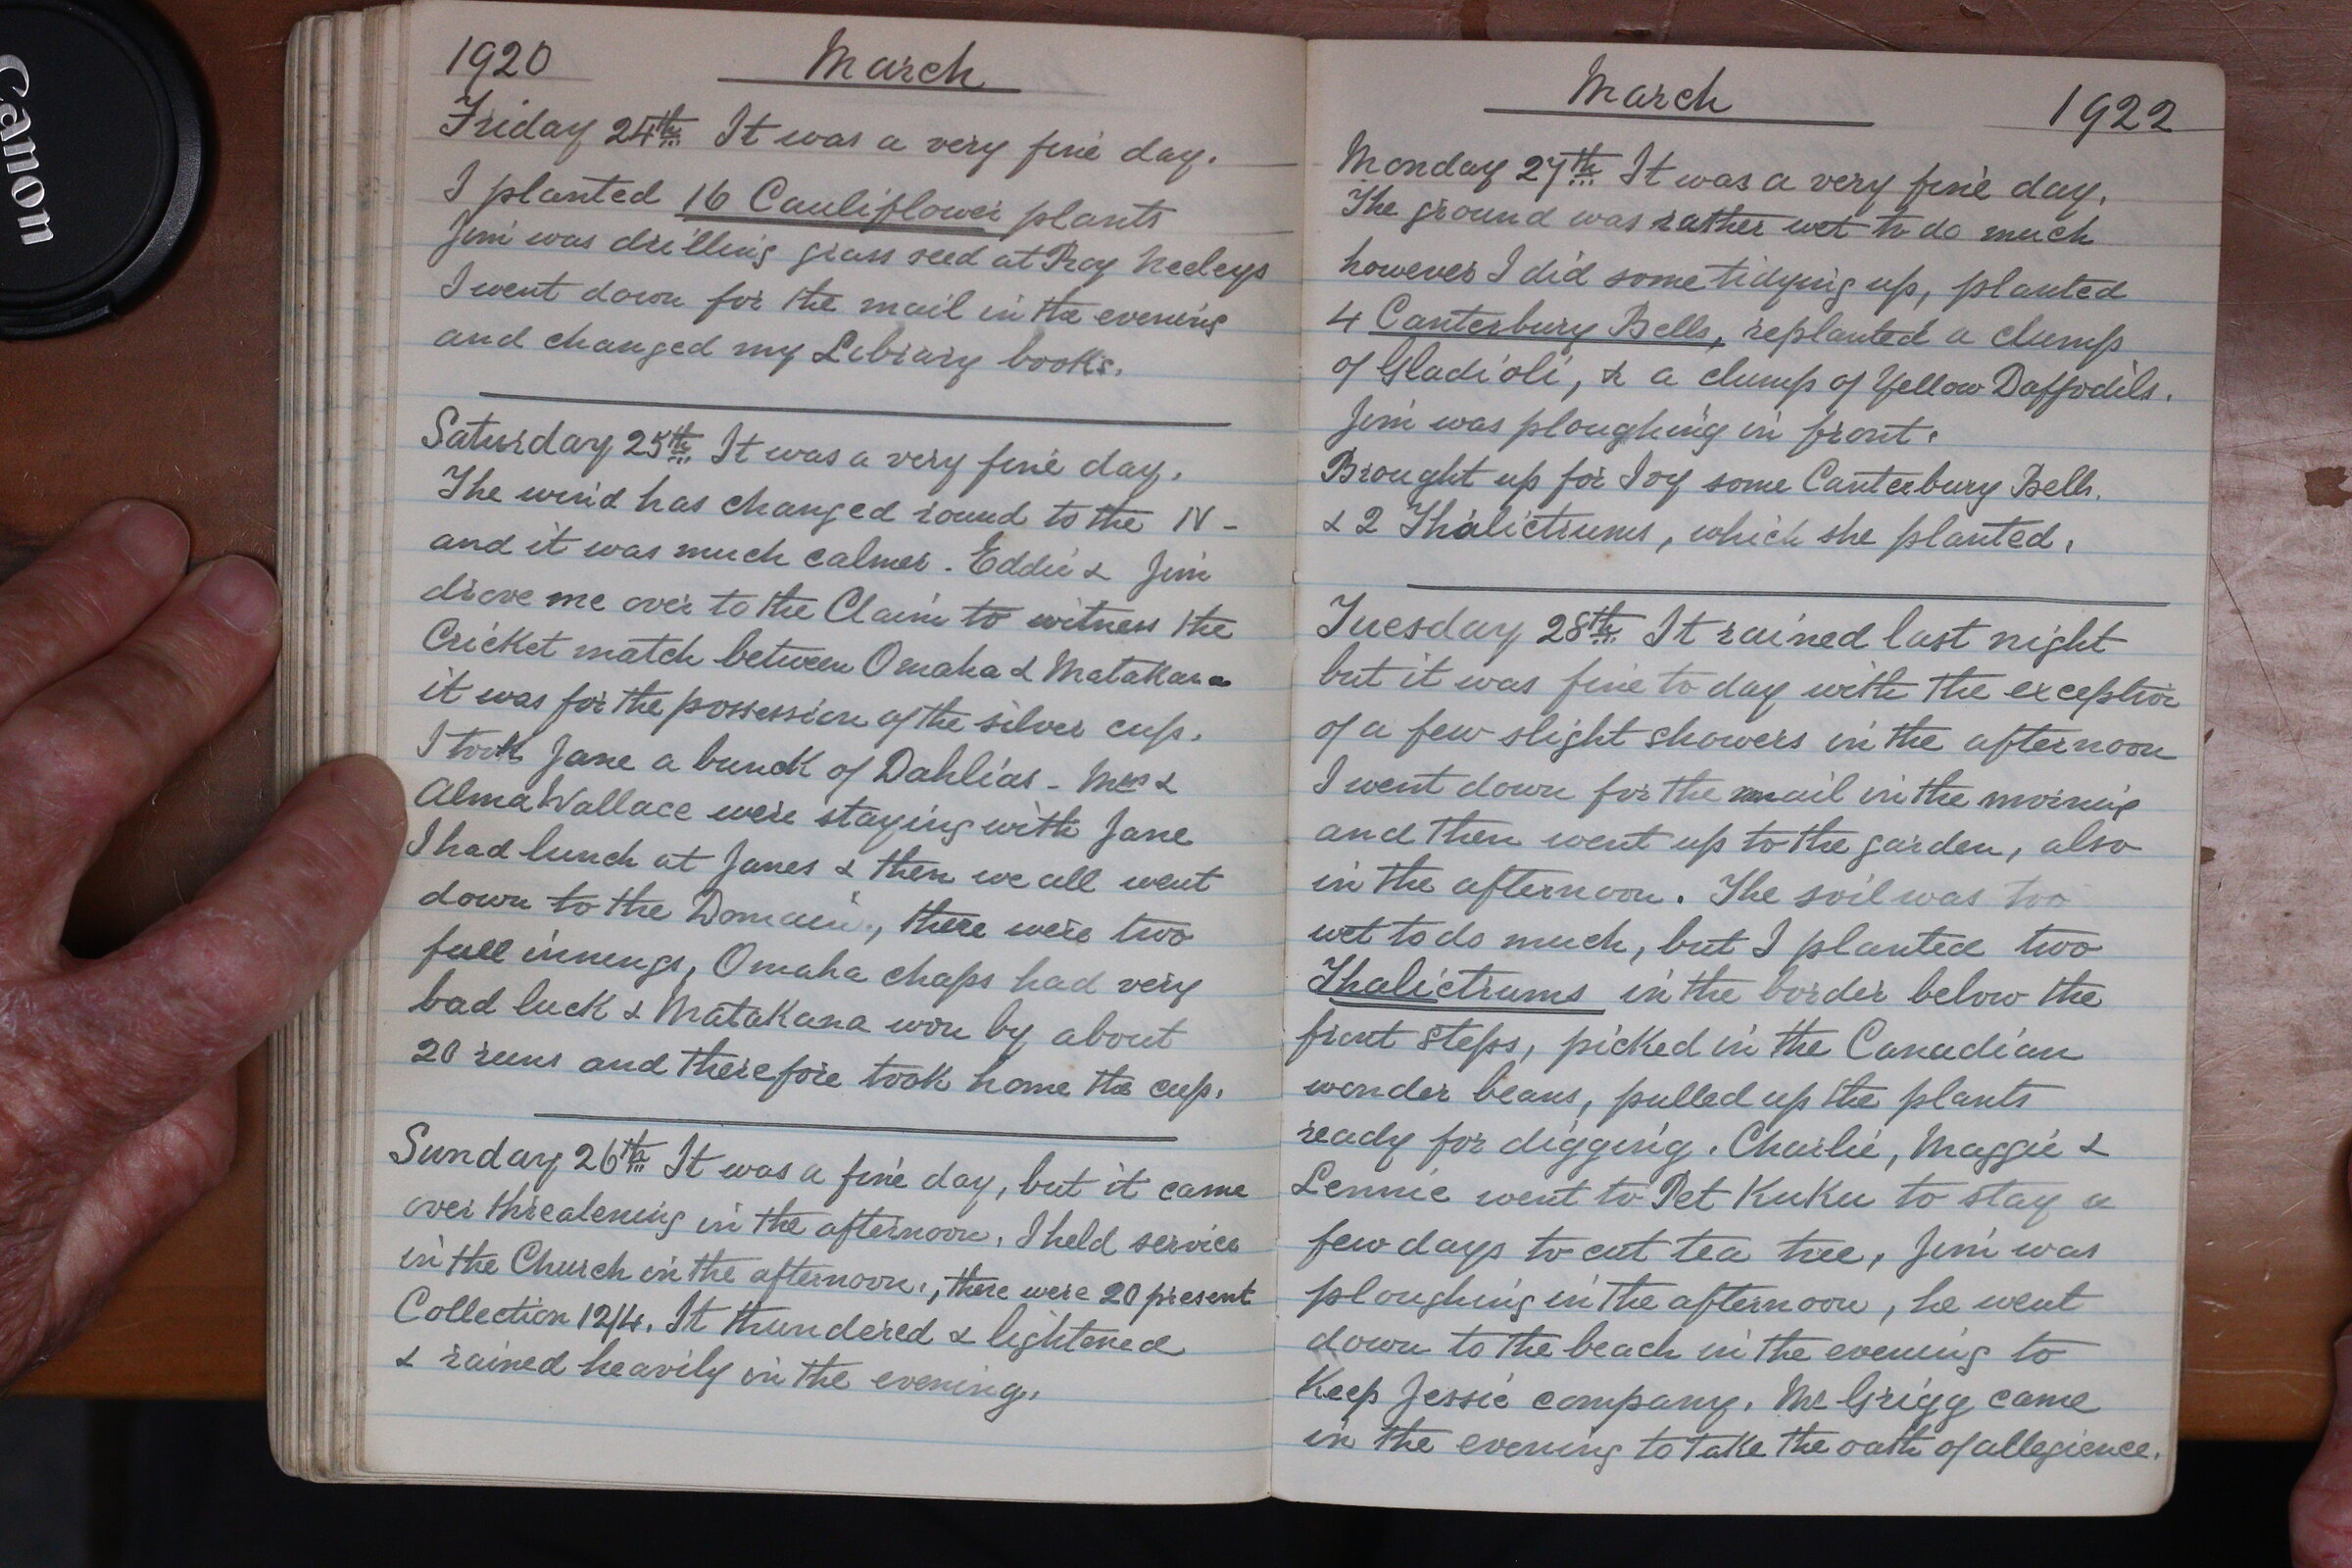 Canon
1920 March
Friday 24th It was a very fine day.
I planted 16 Cauliflower plants
Jim was drilling grass seed at Roy Neeleys
I went down for the mail in the evening
and changed my Library books.
Saturday 25th It was a very fine day.
The wind has changed round to the N -
and it was much calmer. Eddie & Jim
drove me over to the Claim to witness the
Cricket match between Omaha & Matakana
it was for the possession of the silver cup.
I took Jane a bunch of Dahlias - Mrs &
Alma Wallace were staying with Jane
I had lunch at Janes & then we all went
down to the Domain., there were two
full innings, Omaha chaps had very
bad luck & Matakana won by about
20 runs and therefore took home the cup.
Sunday 26th It was a fine day, but it came
over threalening in the afternoon. I held service
in the Church in the afternoon., there were 20 present
Collection 12/4. It thundered & lightened
& rained heavily in the evening.
March 1922
Monday 27th It was a very fine day.
The ground was rather wet to do much
however I did some tidying up, planted
4 Canterbury Bells, replanted a clump
of Gladioli, & a clump of Yellow Daffodils.
Jim was ploughing in front.
Brought up for Ivy some Canterbury Bells.
& 2 Thalictrums, which she planted.
Tuesday 28th It rained last night
but it was fine to day with the exception
of a few slight showers in the afternoon
I went down for the mail in the morning
and then went up to the garden, also
in the afternoon. The soil was too
wet to do much, but I planted two
Thalictrums in the border below the
front steps, picked in the Canadian
wonder beans, pulled up the plants
ready for digging. Charlie, Maggie &
Lennie went to Pet KuKu to stay a
few days to cut tea tree, Jim was
ploughing in the afternoon, he went
down to the beach in the evening to
Keep Jessie company. Mr Grigg came
in the evening to take the oath of allegience.